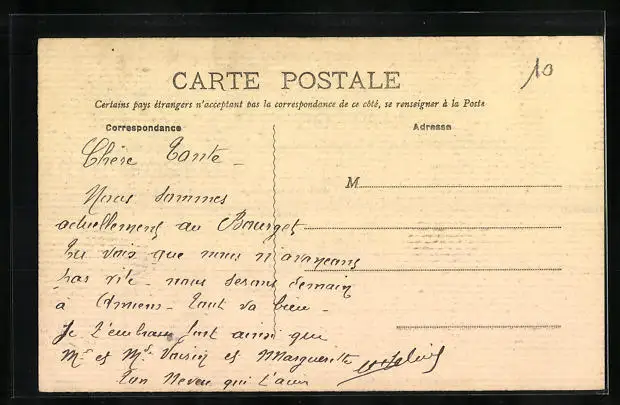 10
CARTE POSTALE
Certains pays étrangers n'acceptant pas la correspondance de ce côté, se renseigner à la Poste
Correspondance
Adresse
Chère Tante -
M
Nous sommes
actuellement au Bourget
Tu vois que nous n'avançons
pas vite - nous serons demain
à Amiens - Tout va bien -
Je t'embrasse fort ainsi que
Mr et Me Voisin et Marguerite
Ton Neveu qui t'aime